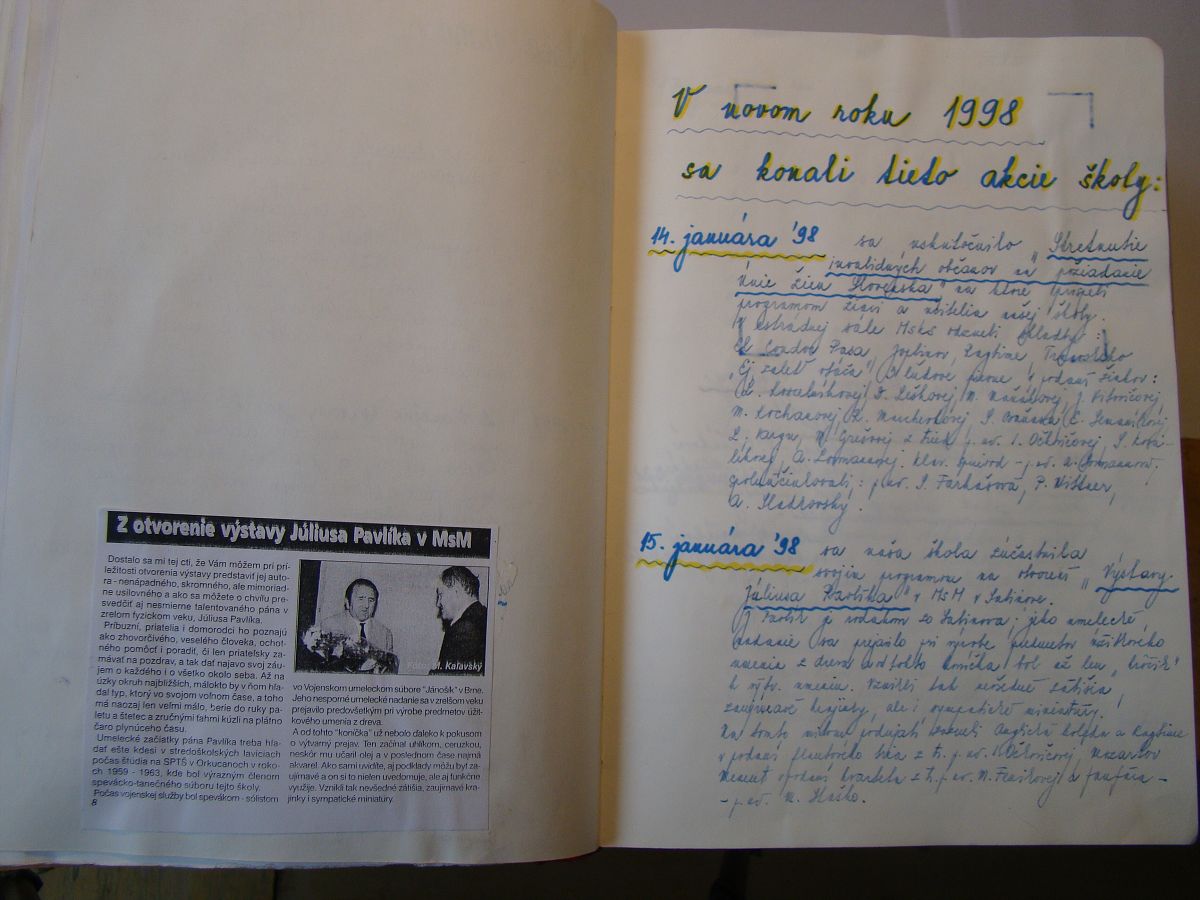 Z otvorenie výstavy Júliusa Pavlíka v MsM
Dostalo sa mi tej cti, že Vám môžem pri prí-
ležitosti otvorenia výstavy predstaviť jej auto-
ra - nenápadného, skromného, ale mimoriad-
ne usilovného a ako sa môžete o chvíľu pre-
svedčiť aj nesmierne talentovaného pána v
zrelom fyzickom veku, Júliusa Pavlíka.
Príbuzní, priatelia i domorodci ho poznajú
ako zhovorčivého, veselého človeka, ochot-
ného pomôcť i poradiť, či len priateľsky za-
mávať na pozdrav, a tak dať najavo svoj záu-
jem o každého i o všetko okolo seba. Až na
úzky okruh najbližších, málokto by v ňom hľa-
dal typ, ktorý vo svojom voľnom čase, a toho
má naozaj len veľmi málo, berie do ruky pa-
letu a štetec a zručnými ťahmi kúzli na plátno
čaro plynúceho času.
Umelecké začiatky pána Pavlíka treba hľa-
dať ešte kdesi v stredoškolských laviciach
počas štúdia na SPTŠ v Orkucanoch v rokoch
1959 - 1963, kde bol výrazným členom
spevácko-tanečného súboru tejto školy.
Počas vojenskej služby bol spevákom - sólistom
8
Foto: M. Kaľavský
vo Vojenskom umeleckom súbore "Jánošík" v Brne.
Jeho nesporné umelecké nadanie sa v zrelšom veku
prejavilo predovšetkým pri výrobe predmetov úžit-
kového umenia z dreva.
A od tohto "koníčka" už nebolo ďaleko k pokusom
o výtvarný prejav. Ten začínal uhlíkom, ceruzkou,
neskôr mu učaril olej a v poslednom čase najmä
akvarel. Ako sami uvidíte, aj podklady môžu byť za-
ujímavé a on si to nielen uvedomuje, ale aj funkčne
využije. Vzniká tak nevšedné zátišia, zaujímavé kra-
jinky i sympatické miniatúry.
V novom roku 1998
sa konali tieto akcie školy:
14. januára '98 sa uskutočnilo "Stretnutie
invalidných občanov na požiadanie
Únie žien Slovenska" na ktoré prispeli
programom žiaci a učitelia našej školy.
V estrádnej sále MsKS odzneli skladby:
El Condor Pasa, Ragtime,
a ľudové piesne v podaní žiakov:
D. Leškovej, J. Vitkovičovej,
M. Kochanovej,
M. Grešovej z tried p. uč. I. Očkovičovej,
klav. sprievod - p. uč.
spoluúčinkovali: p. uč. S. Farkašová, P. Wittner,
A. Sladkovský.
15. januára '98 sa naša škola zúčastnila
svojim programom na otvorení "Výstavy
Júliusa Pavlíka" v MsM v Sabinove.
J. Pavlík je rodákom zo Sabinova; jeho umelecké
nadanie sa prejavilo pri výrobe predmetov úžitkového
umenia z dreva a od tohto koníčka bol už len "krôčik"
k výtv. umeniu. Vznikli tak nevšedné zátišia,
zaujímavé krajinky, ale i sympatické miniatúry.
Na tomto podujatí odzneli Anglická koleda a Ragtime
v podaní flautového tria z tr. p. uč. I. Očkovičovej, Mozartov
Menuet v podaní kvarteta z tr. p. uč. a fanfára -
- p. uč. M. Haško.